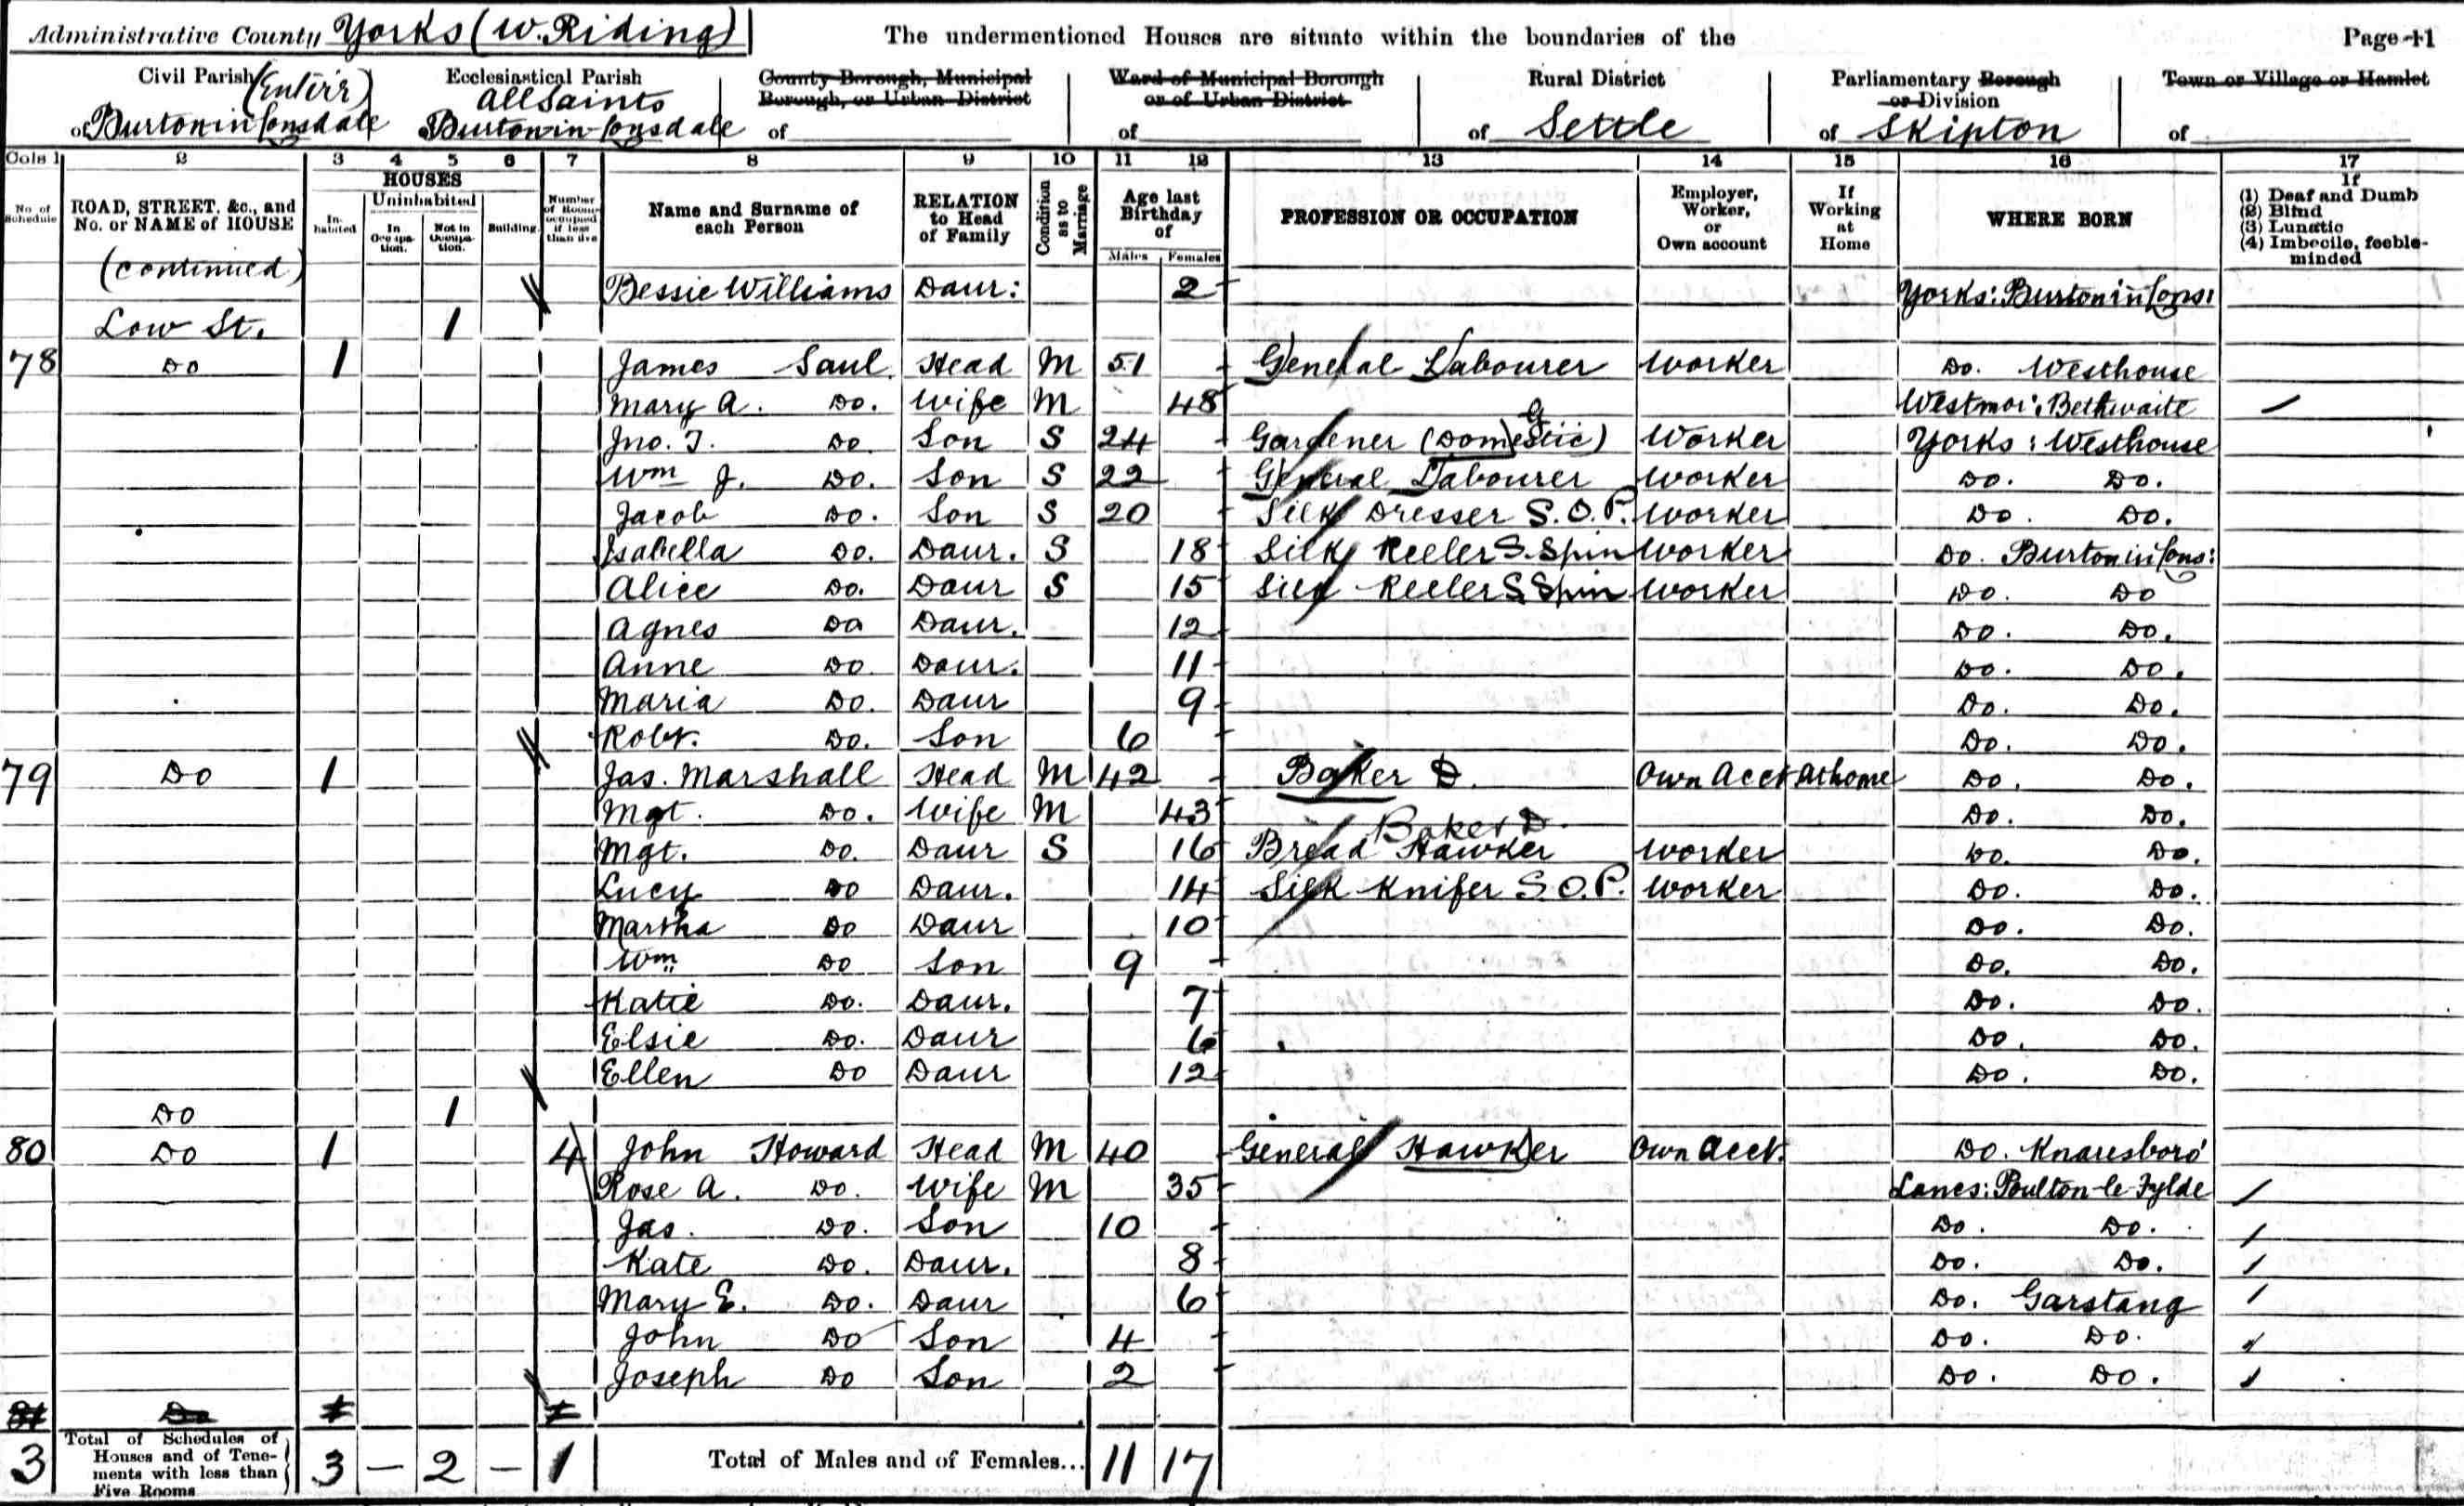 Administrative County Yorks (W. Riding) The undermentioned Houses are situate within the boundaries of the Page 11
Civil Parish (Entire) of Burton in Lonsdale
Ecclesiastical Parish All Saints Burton-in-Lonsdale
County Borough, Municipal Borough, or Urban District of
Ward of Municipal Borough or of Urban District of
Rural District of Settle
Parliamentary Borough or Division of Skipton
Town or Village or Hamlet of
Cols 1 2 3 4 5 6 7 8 9 10 11 12 13 14 15 16 17
No. of Schedule
ROAD, STREET, &c., and No. or NAME of HOUSE
HOUSES
Inhabited
Uninhabited
In Occupation.
Not in Occupation.
Building
Number of Rooms occupied if less than five
Name and Surname of each Person
RELATION to Head of Family
Condition as to Marriage
Age last Birthday of
Males Females
PROFESSION OR OCCUPATION
Employer, Worker, or Own account
If Working at Home
WHERE BORN
If
(1) Deaf and Dumb
(2) Blind
(3) Lunatic
(4) Imbecile, feeble-minded
(continued) Bessie Williams Daur: 2 Yorks: Burton in Lons:
Low St. 1
78 Do 1 James Saul Head M 51 General Labourer Worker Do. Westhouse
Mary A. Do. Wife M 48 Westmor: Bethwaite
Jno. T. Do Son S 24 Gardener (Domestic) G Worker Yorks: Westhouse
Wm J. Do. Son S 22 General Labourer Worker Do. Do.
Jacob Do. Son S 20 Silk Dresser S.O.P. Worker Do. Do.
Isabella Do. Daur. S 18 Silk Reeler S. Spin Worker Do. Burton in Lons:
Alice Do. Daur S 15 Silk Reeler S Spin Worker Do. Do
Agnes Do Daur. 12 Do. Do.
Anne Do Daur. 11 Do. Do.
Maria Do. Daur 9 Do. Do.
Robt. Do. Son 6 Do. Do.
79 Do 1 Jas. Marshall Head M 42 Baker D. Own Acct At home Do. Do.
Mgt. Do. Wife M 43 Do. Do.
Baker D.
Mgt. Do. Daur S 16 Bread Hawker Worker Do. Do.
Lucy Do Daur. 14 Silk Knifer S.O.P. Worker Do. Do.
Martha Do Daur 10 Do. Do.
Wm. Do Son 9 Do. Do.
Katie Do. Daur. 7 Do. Do.
Elsie Do. Daur 6 Do. Do.
Ellen Do Daur 12 Do. Do.
Do 1
80 Do 1 4 John Howard Head M 40 General Hawker Own Acct. Do. Knaresboro'
Rose A. Do. Wife M 35 Lancs: Poulton-le-Fylde
Jas. Do. Son 10 Do. Do.
Kate Do. Daur. 8 Do. Do.
Mary E. Do. Daur 6 Do. Garstang
John Do Son 4 Do. Do.
Joseph Do Son 2 Do. Do.
81 Do 1
3 Total of Schedules of Houses and of Tenements with less than Five Rooms 3 – 2 – 1 Total of Males and of Females... 11 17